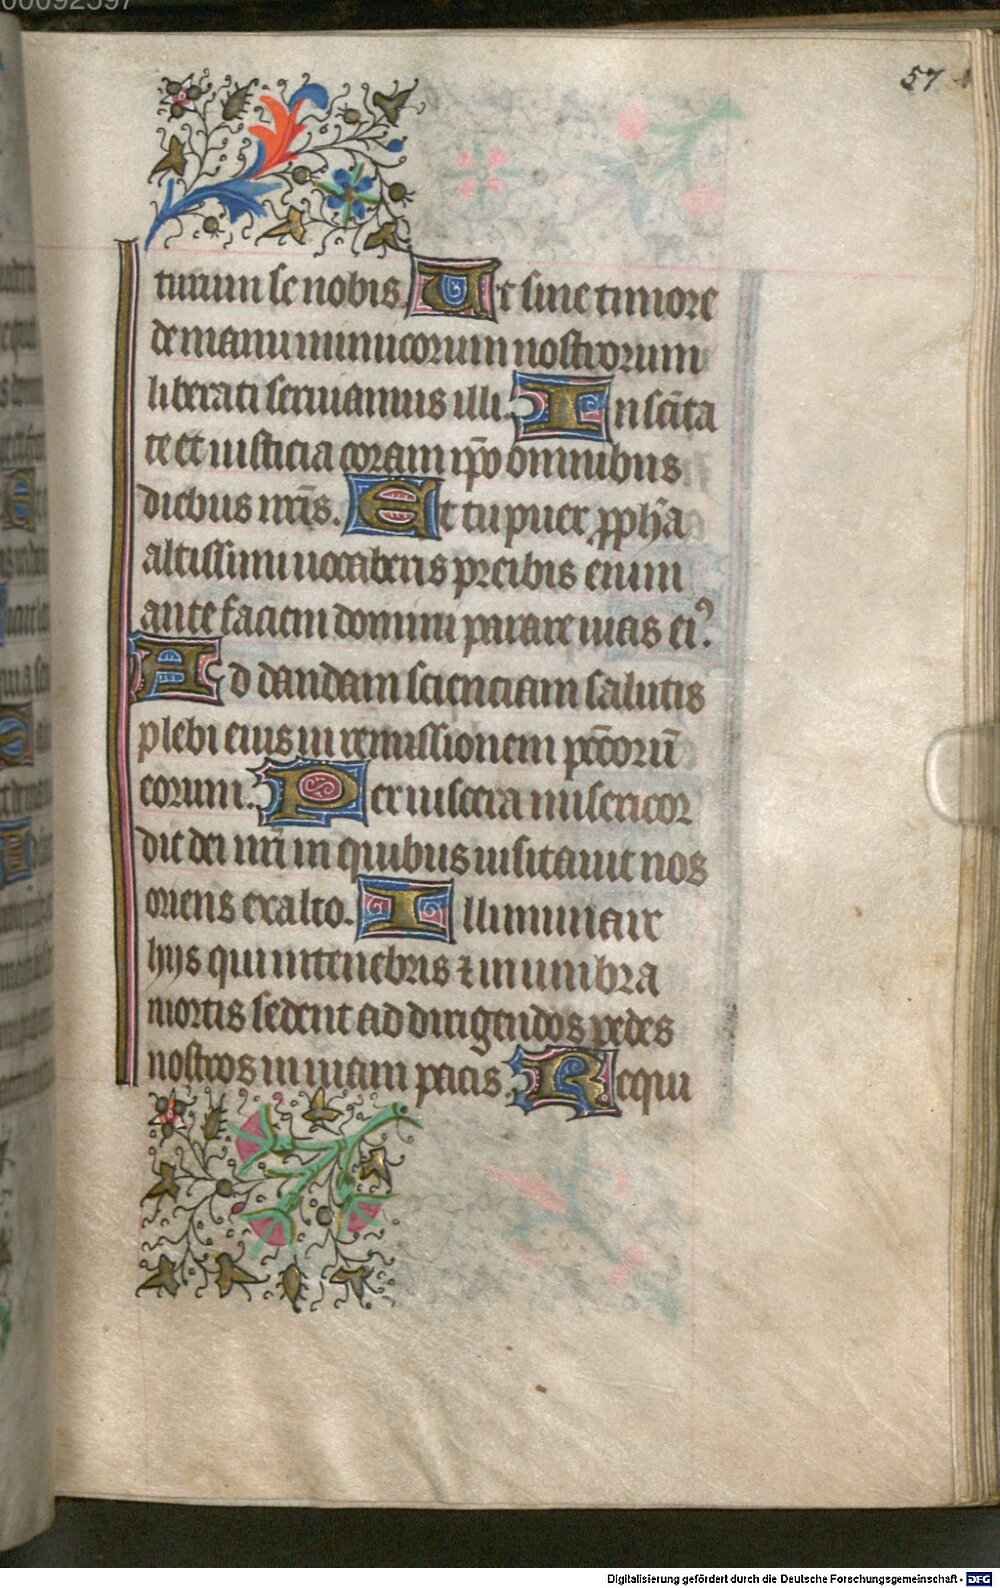 00092597
57
turum se nobis. Ut sine timore
de manu inimicorum nostrorum
liberati seruiamus illi. In sc̄ita
te et iusticia coram ip̄o omnibus
diebus nr̄is. Et tu puer ꝓph̄a
altissimi uocaberis preibis enim
ante faciem domini parare uias ei⁹.
Ad dandam scienciam salutis
plebi eius in remissionem pc̄c̄orū
eorum. Per uiscera misericor
die dei nr̄i in quibus uisitauit nos
oriens ex alto. Illuminare
hijs qui in tenebris ⁊ in umbra
mortis sedent ad dirigendos pedes
nostros in uiam pacis. Requi
Digitalisierung gefördert durch die Deutsche Forschungsgemeinschaft - DFG